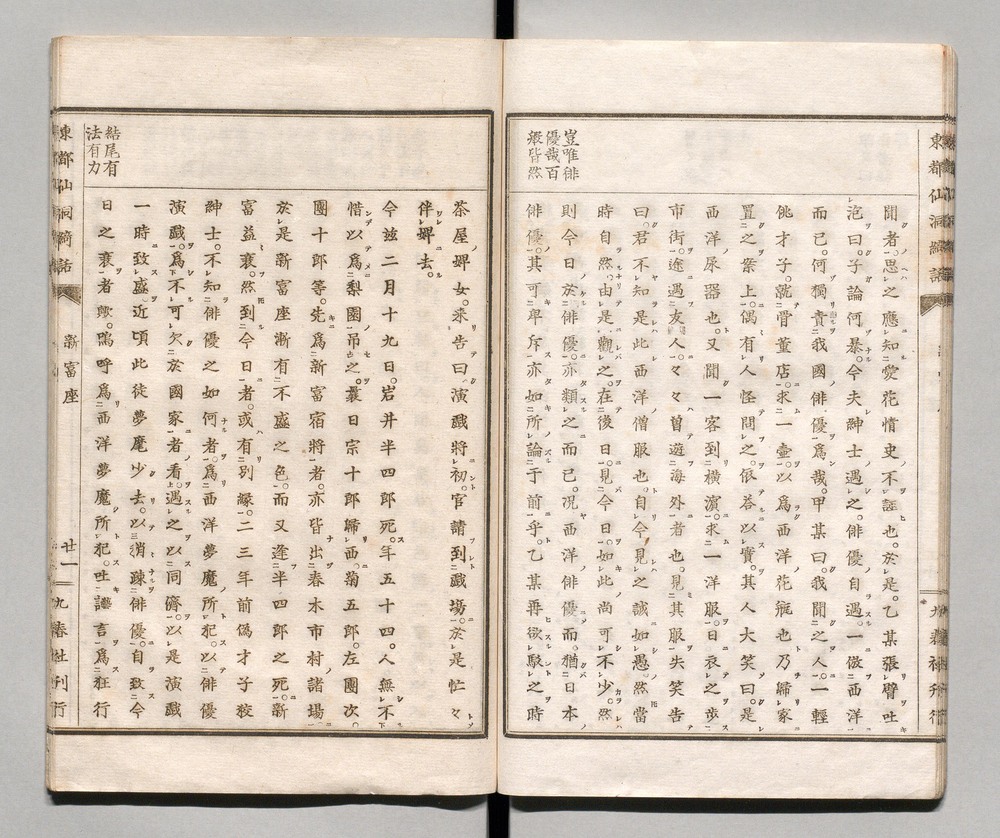 東都仙洞綺話
豈唯俳
優哉百
般皆然
聞者。思之應知愛花情史不誣也。於是。乙某張臂吐
泡曰。子論何暴。今夫紳士遇之。俳優自遇。一倣西洋
而已。何獨責我國俳優爲哉。甲某曰。我聞之人。一輕
佻才子。就骨董店。求一壺。以爲西洋花瓶也。乃歸家
置之案上。偶有人怪問之。依答以實。其人大笑曰。是
西洋尿器也。又聞一客到橫濱。求一洋服。日衣之步
市街。途遇友人。々々曾遊海外者也。見其服失笑告
曰。君不知。是此西洋僧服也。自今見之誠如愚。然當
時自然。由是觀之。在後日。見今日。如此尚可不少。然
則今日於俳優。亦類之而已。况西洋俳優而。猶日本
俳優。其可卑斥。亦如所論于前乎。乙某再欲駁之時
茶屋婢女。來告曰。演戲將初。官請到戲場。於是忙々
伴婢去。
今玆二月十九日。岩井半四郎死。年五十四。人無不
惜。以爲梨園吊之。曩日宗十郎歸西。菊五郎。左團次。
團十郎等。先爲新富宿將者。亦皆出春木市村諸場
於是新富座漸有不盛之色。而又逢半四郎之死。新
富益衰。然到今日者。或有別緣。二三年前僞才子狡
紳士。不知俳優之如何者。爲西洋夢魔所犯。以俳優
演戲。爲不可欠於國家者看。遇之以同儕。以是演戲
一時致盛。近頃此徒夢魔少去。以消踈俳優。自致今
日之衰者歟。嗚呼爲西洋夢魔所犯。吐譫言。爲狂行
結尾有
法有力
東都仙洞綺話
新富座
廿一
九春社刊行